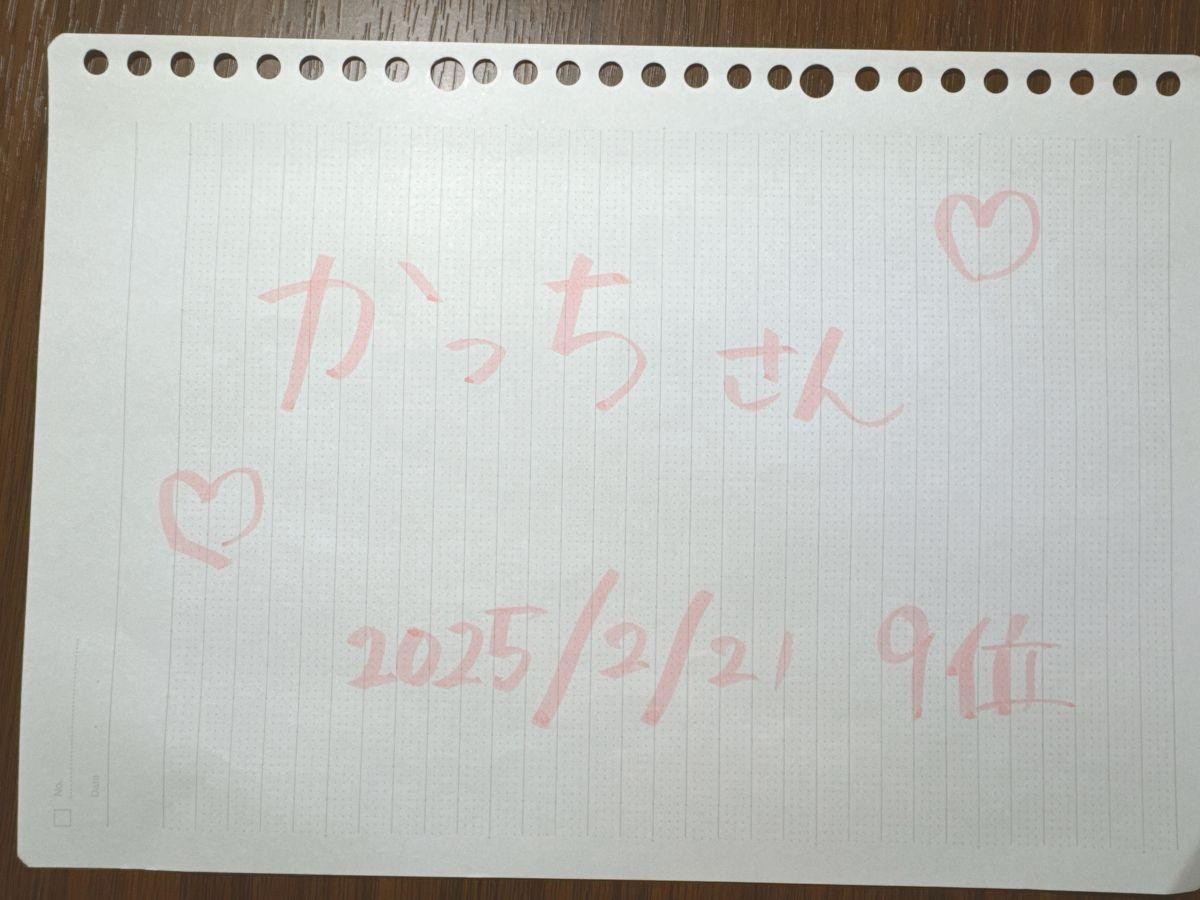 かっちさん
2025/2/21 9位
No.
Date